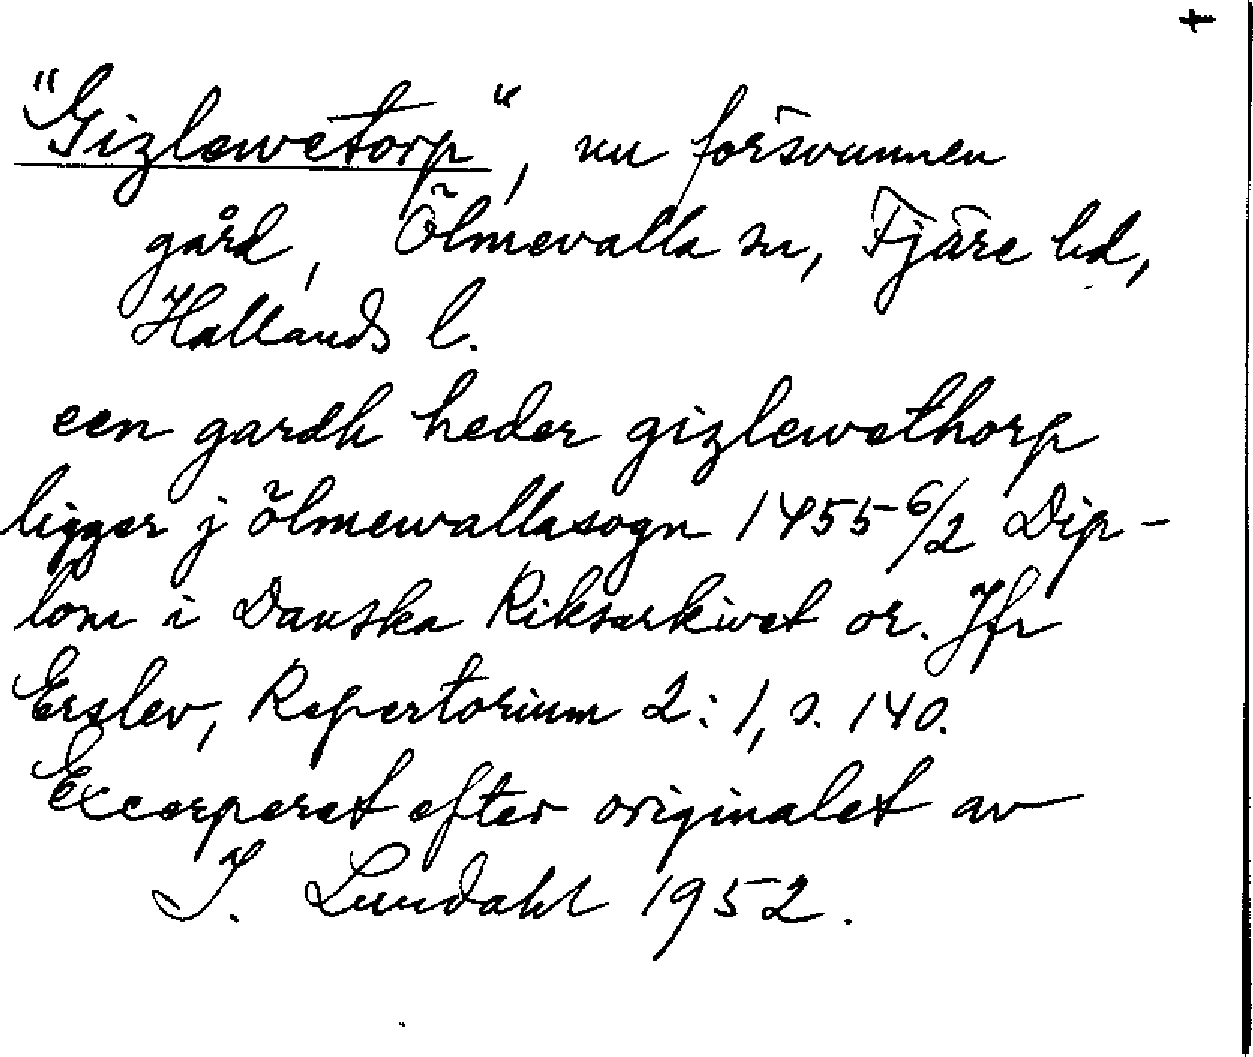 †
"Gizlewetorp", nu försvunnen
gård, Ölmevalla sn, Fjäre hd,
Hallands l.
een gardh heder gizlewethorp
ligger j ölmewallasogn 1455 6/2 Dip-
lom i Danska Riksarkivet or. Jfr
Erslev, Repertorium 2:1, s. 140.
Excerperat efter originalet av
I. Lundahl 1952.